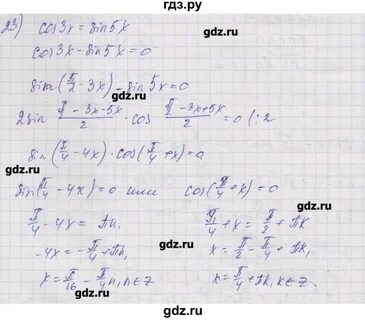 гдз.ру
23) cos3x = sin5x
cos3x - sin5x = 0
sin(π/2 - 3x) - sin5x = 0
2sin (π/2 - 3x - 5x)/2 · cos (π/2 - 3x + 5x)/2 = 0 (:2
sin(π/4 - 4x) · cos(π/4 + x) = 0
sin(π/4 - 4x) = 0 или cos(π/4 + x) = 0
π/4 - 4x = πn. π/4 + x = π/2 + πk
-4x = -π/4 + πn, x = π/2 - π/4 + πk,
x = π/16 - π/4 n, n∈Z x = π/4 + πk, k∈Z.
гдз.ру